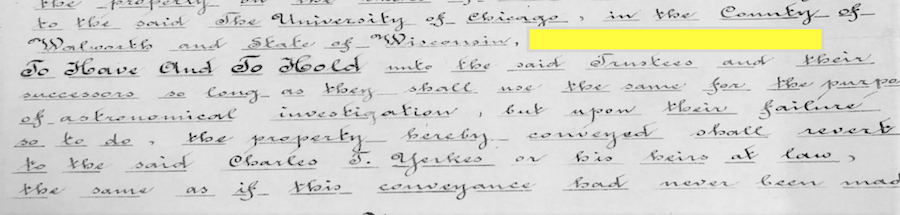 the property on the
to the said The University of Chicago, in the County of
Walworth and State of Wisconsin,
To Have And To Hold unto the said Trustees and their
successors so long as they shall use the same for the purpo
of astronomical investigation, but upon their failure
so to do, the property hereby conveyed shall revert
to the said Charles T. Yerkes or his heirs at law,
the same as if this conveyance had never been mad